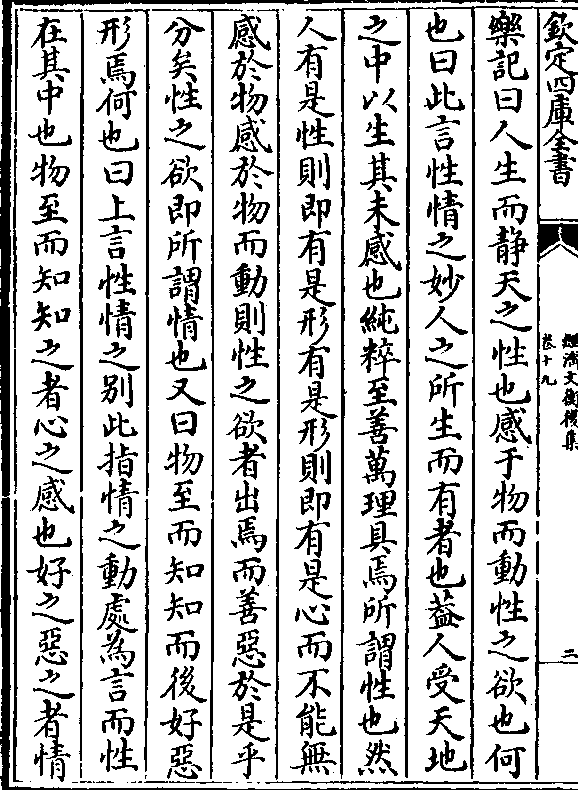 欽定四庫全書
經濟文衡後集
卷十九
二
樂記曰人生而静天之性也感于物而動性之欲也何
也曰此言性情之妙人之所生而有者也葢人受天地
之中以生其未感也純粹至善萬理具焉所謂性也然
人有是性則即有是形有是形則即有是心而不能無
感於物感於物而動則性之欲者出焉而善惡於是乎
分矣性之欲即所謂情也又曰物至而知知而後好惡
形焉何也曰上言性情之别此指情之動處為言而性
在其中也物至而知知之者心之感也好之惡之者情